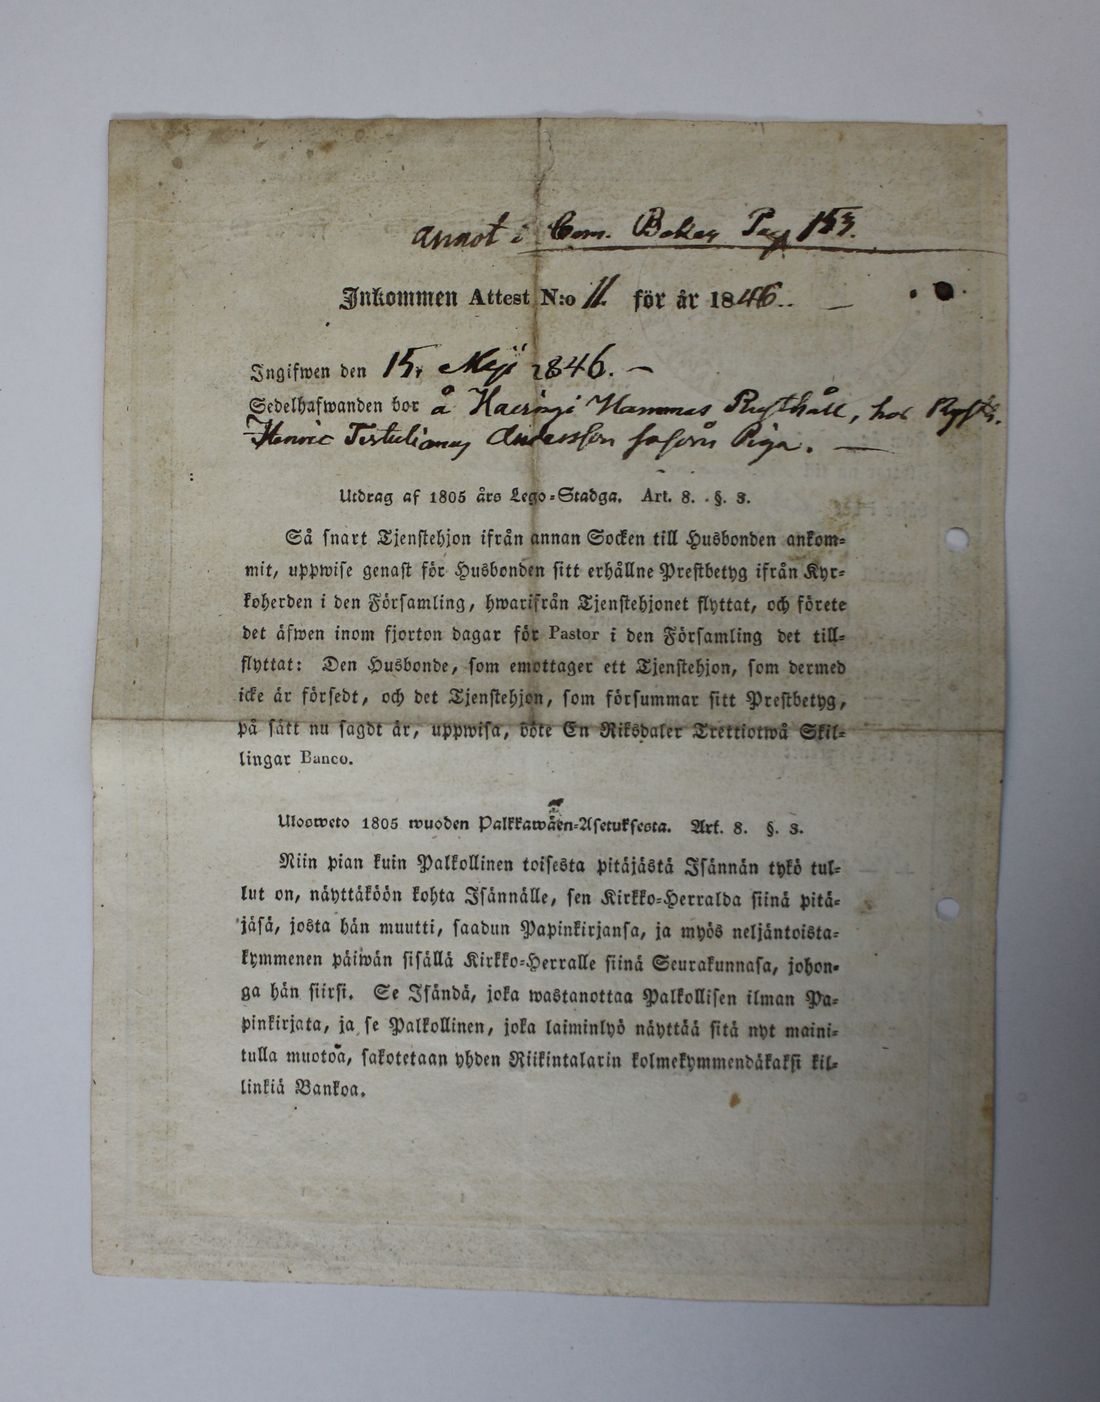 annot i Com. Boken Pag 153.
Inkommen Attest N:o 11. för år 1846.
Ingifwen den 15. Maji 1846. —
Sedelhafwanden bor å Haeringi Hammas Rusthåll, hos
Henric Andersson såsom Piga. —
Utdrag af 1805 års Lego-Stadga. Art. 8. §. 3.
Så snart Tjenstehjon ifrån annan Socken till Husbonden ankom-
mit, uppwise genast för Husbonden sitt erhållne Prestbetyg ifrån Kyr-
koherden i den Församling, hwarifrån Tjenstehjonet flyttat, och förete
det äfwen inom fjorton dagar för Pastor i den Församling det till-
flyttat: Den Husbonde, som emottager ett Tjenstehjon, som dermed
icke är försedt, och det Tjenstehjon, som försummar sitt Prestbetyg,
på sätt nu sagdt är, uppwisa, böte En Riksdaler Trettiotwå Skil-
lingar Banco.
Ulosweto 1805 wuoden Palkkawäen-Asetuksesta. Art. 8. §. 3.
Niin pian kuin Palkollinen toisesta pitäjästä Isännän tykö tul-
lut on, näyttäköön kohta Isännälle, sen Kirkko-Herralda siinä pitä-
jäsä, josta hän muutti, saadun Papinkirjansa, ja myös neljäntoista-
kymmenen päiwän sisällä Kirkko-Herralle siinä Seurakunnasa, johon-
ga hän siirsi. Se Isändä, joka wastanottaa Palkollisen ilman Pa-
pinkirjata, ja se Palkollinen, joka laiminlyö näyttää sitä nyt maini-
tulla muotoa, sakotetaan yhden Riikintalarin kolmekymmendäkaksi kil-
linkiä Bankoa.